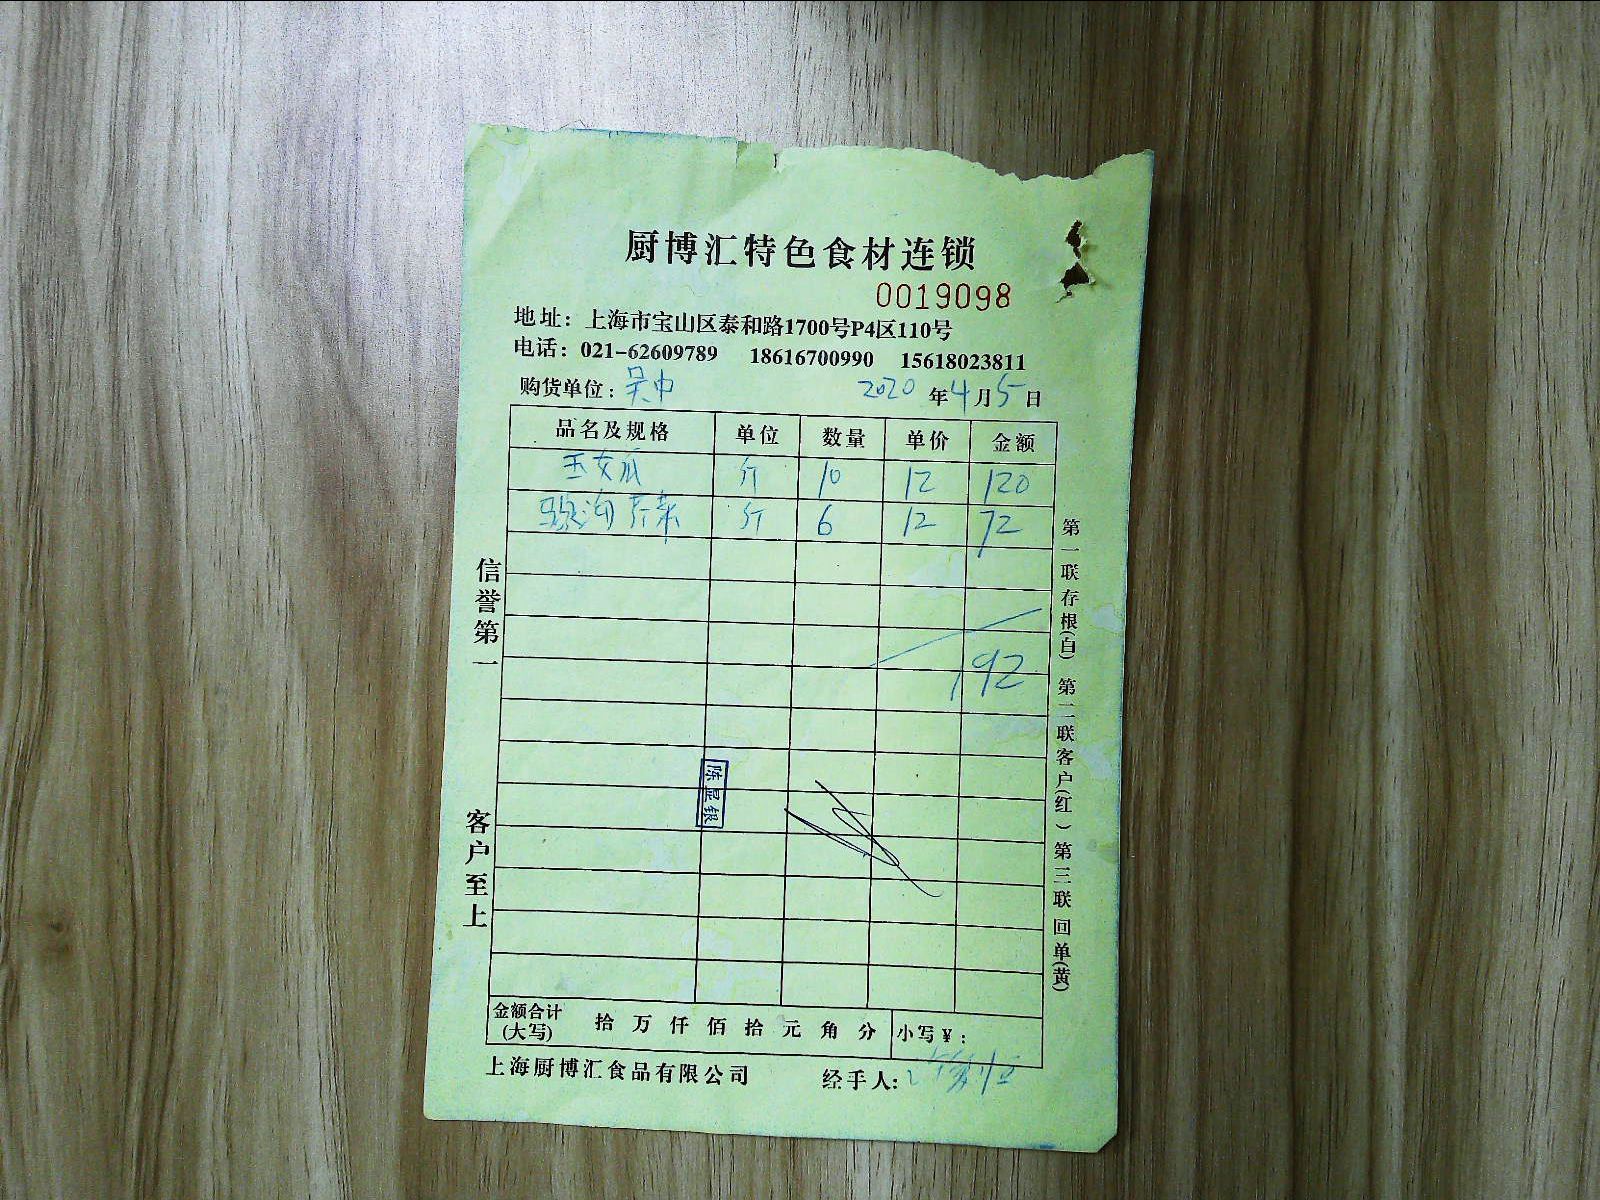 厨博汇特色食材连锁
0019098
地址：上海市宝山区泰和路1700号P4区110号
电话：021-62609789 18616700990 15618023811
购货单位：吴中 2020年4月5日
品名及规格 单位 数量 单价 金额
玉女瓜 斤 10 12 120
芹菜 斤 6 12 72
192
陈显银
信誉第一
客户至上
第一联存根(白) 第二联客户(红) 第三联回单(黄)
金额合计(大写) 拾万仟佰拾元角分 小写¥：
上海厨博汇食品有限公司 经手人：